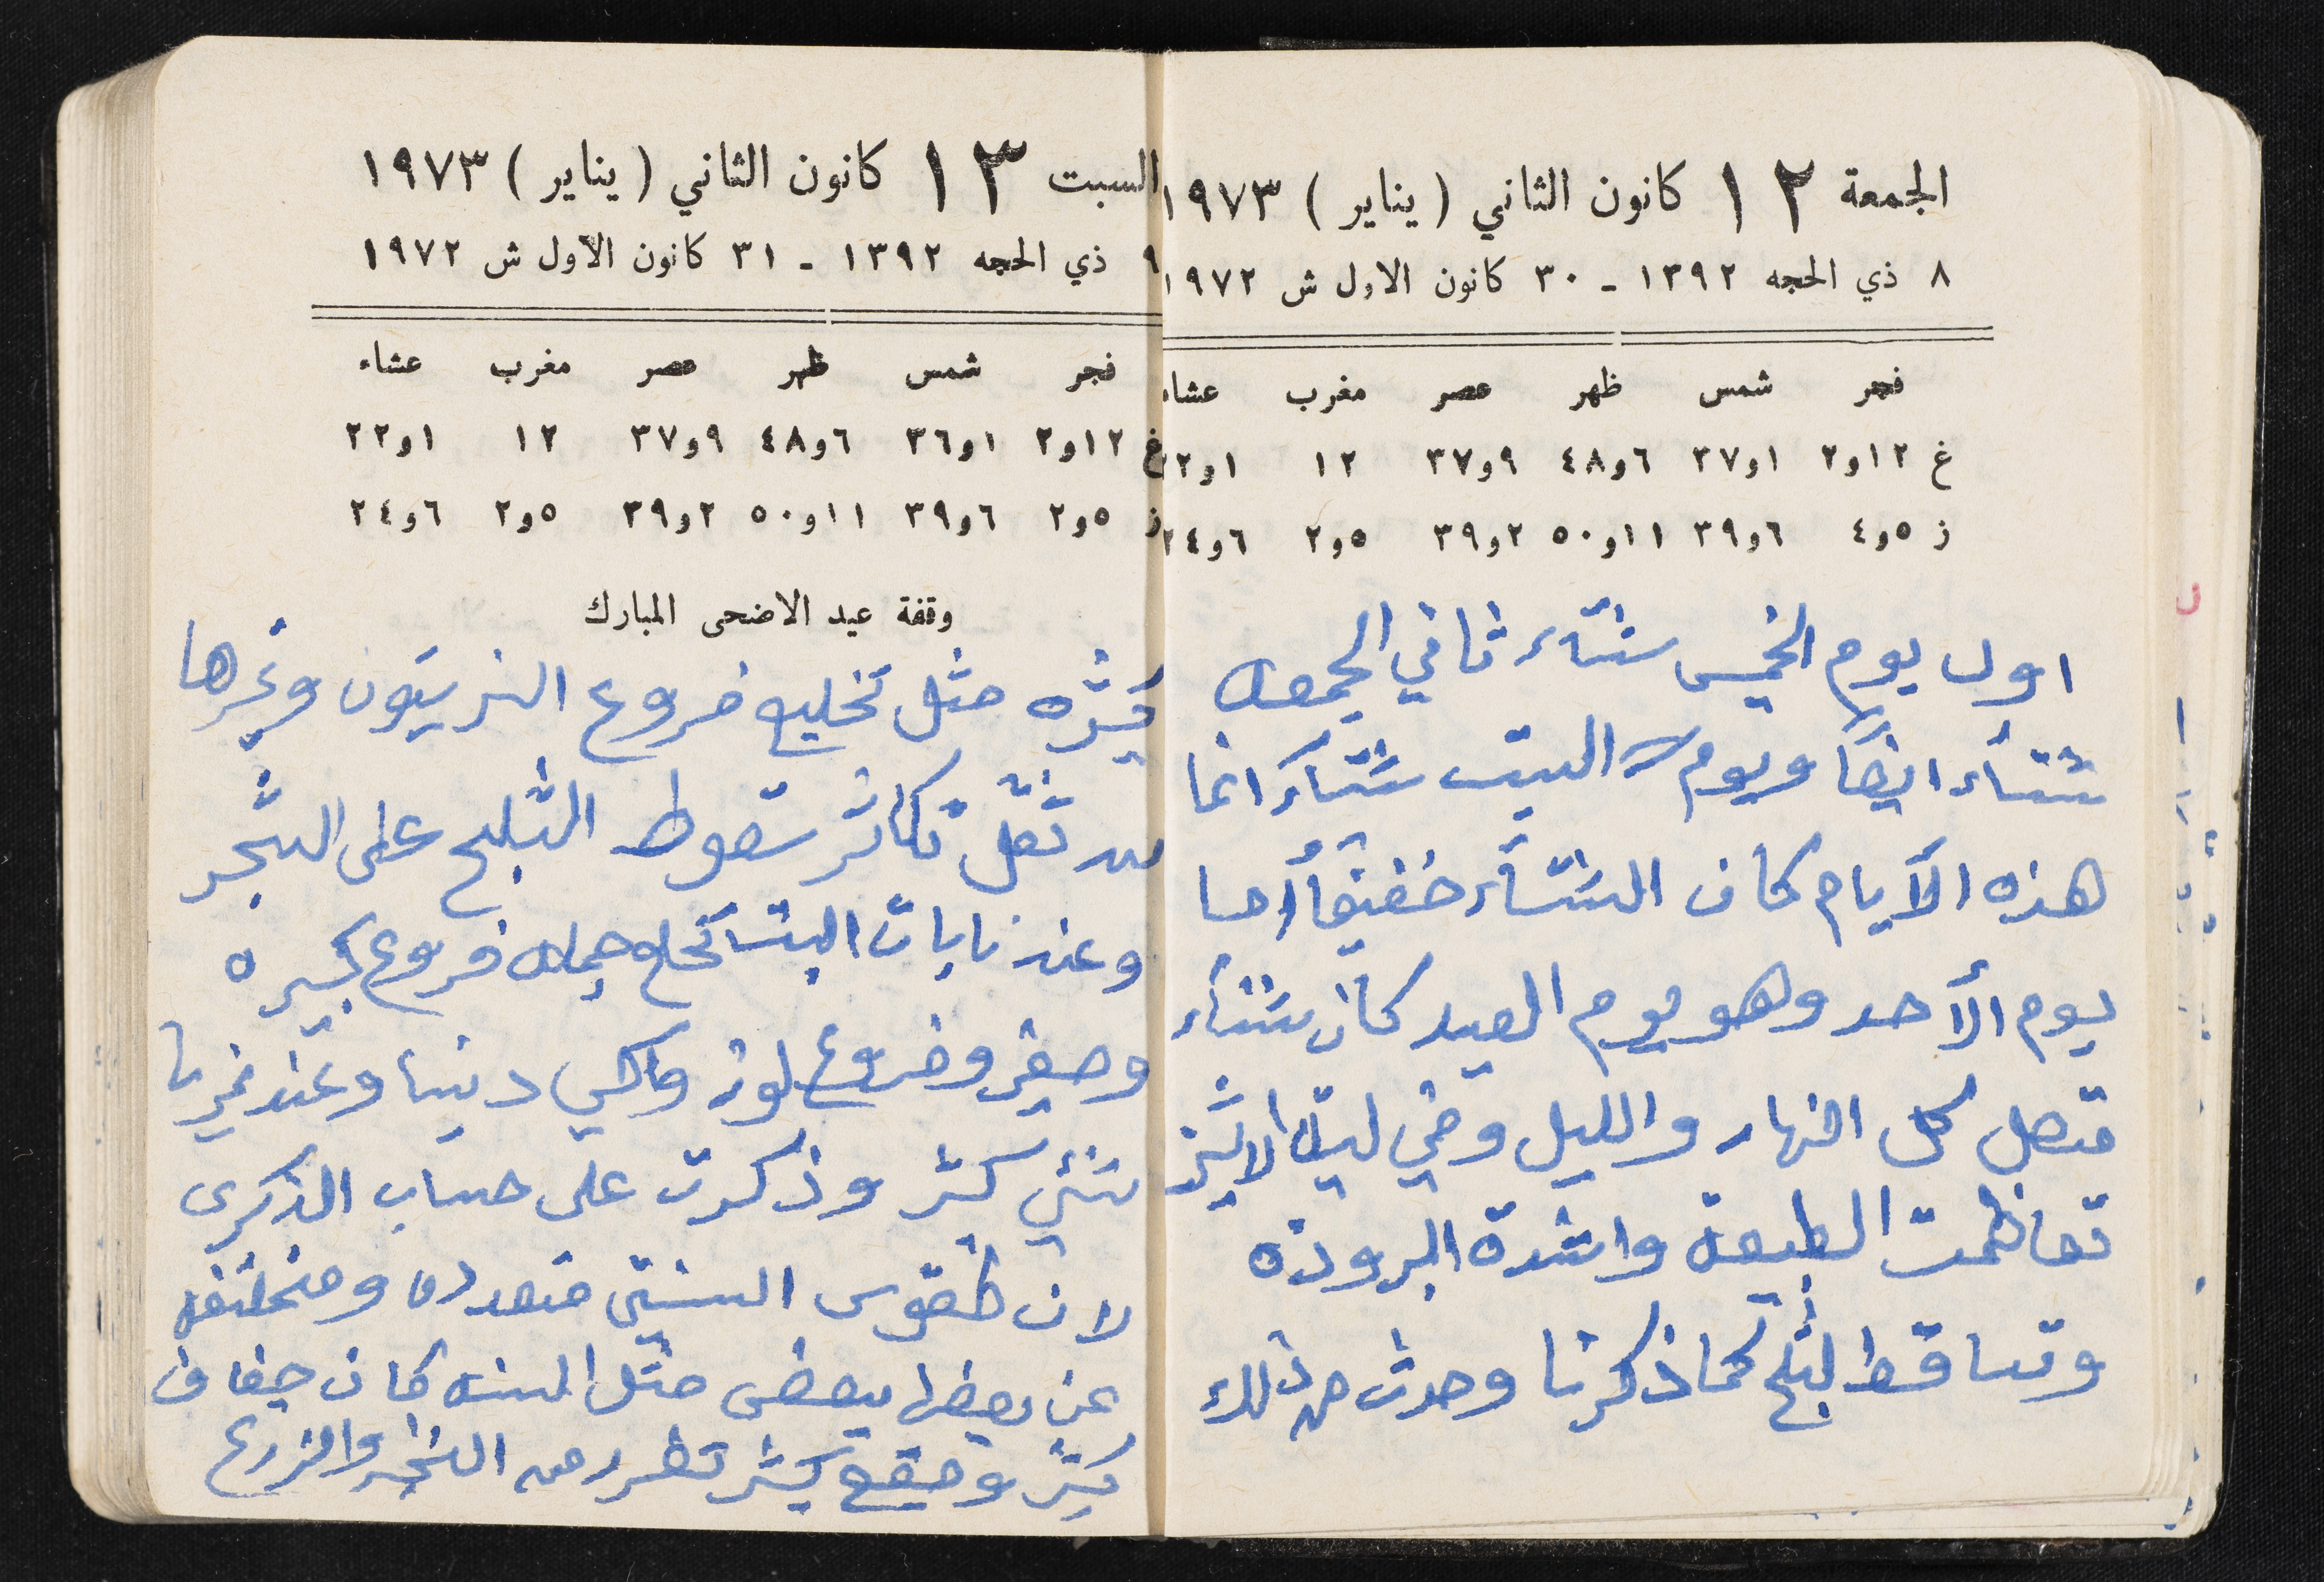 الجمعة ١٢ كانون الثاني ( يناير ) ١٩٧٣
٨ ذي الحجه ١٣٩٢ - ٣٠ كانون الاول ش ١٩٧٢
فجر شمس ظهر عصر مغرب عشاء
غ ١٢و٢ ١و٣٧ ٦و٤٨ ٩و٣٧ ١٢ ١و٢٢
ز ٥و٤ ٦و٣٩ ١١و٥٠ ٢و٣٩ ٥و٢ ٦و٢٤
اول يوم الخميس شتاء ثاني الجمعه
شتاء ايضاً ويوم السبت شتاء انما
هذه الأيام كان الشتاء خفيفاً أما
يوم الأحد وهو يوم العيد كان شتاء
متصل كل النهار والليل وفي ليلة الاثنين
تعاظمت الطبيعه واشدة البروده
وتساقط الثلج كما ذكرنا وحدث من ذلك
السبت ١٣ كانون الثاني ( يناير ) ١٩٧٣
٩ ذي الحجه ١٣٩٢ - ٣١ كانون الاول ش ١٩٧٢
فجر شمس ظهر عصر مغرب عشاء
غ ١٢و٢ ١و٣٦ ٦و٤٨ ٩و٣٧ ١٢ ١و٢٢
ز ٥و٢ ٦و٣٩ ١١و٥٠ ٢و٣٩ ٥و٢ ٦و٢٤
وقفة عيد الاضحى المبارك
كثيره مثل تخليع فروع الزيتون وغيرها
من ثقل تكاثر سقوط الثلج على الشجر
وعند نابات البت تخلع جمله فروع كبيره
وصغير وفروع لوز واكي دنيا وعند غيرنا
شيء كثير وذكرت على حساب الذكرى
لان طقوس السنين متعدده ومختلفه
عن بعضها ببعض مثل السنه كان جفاف
كثير وصقيع كثير تضرر من الشجر والزرع